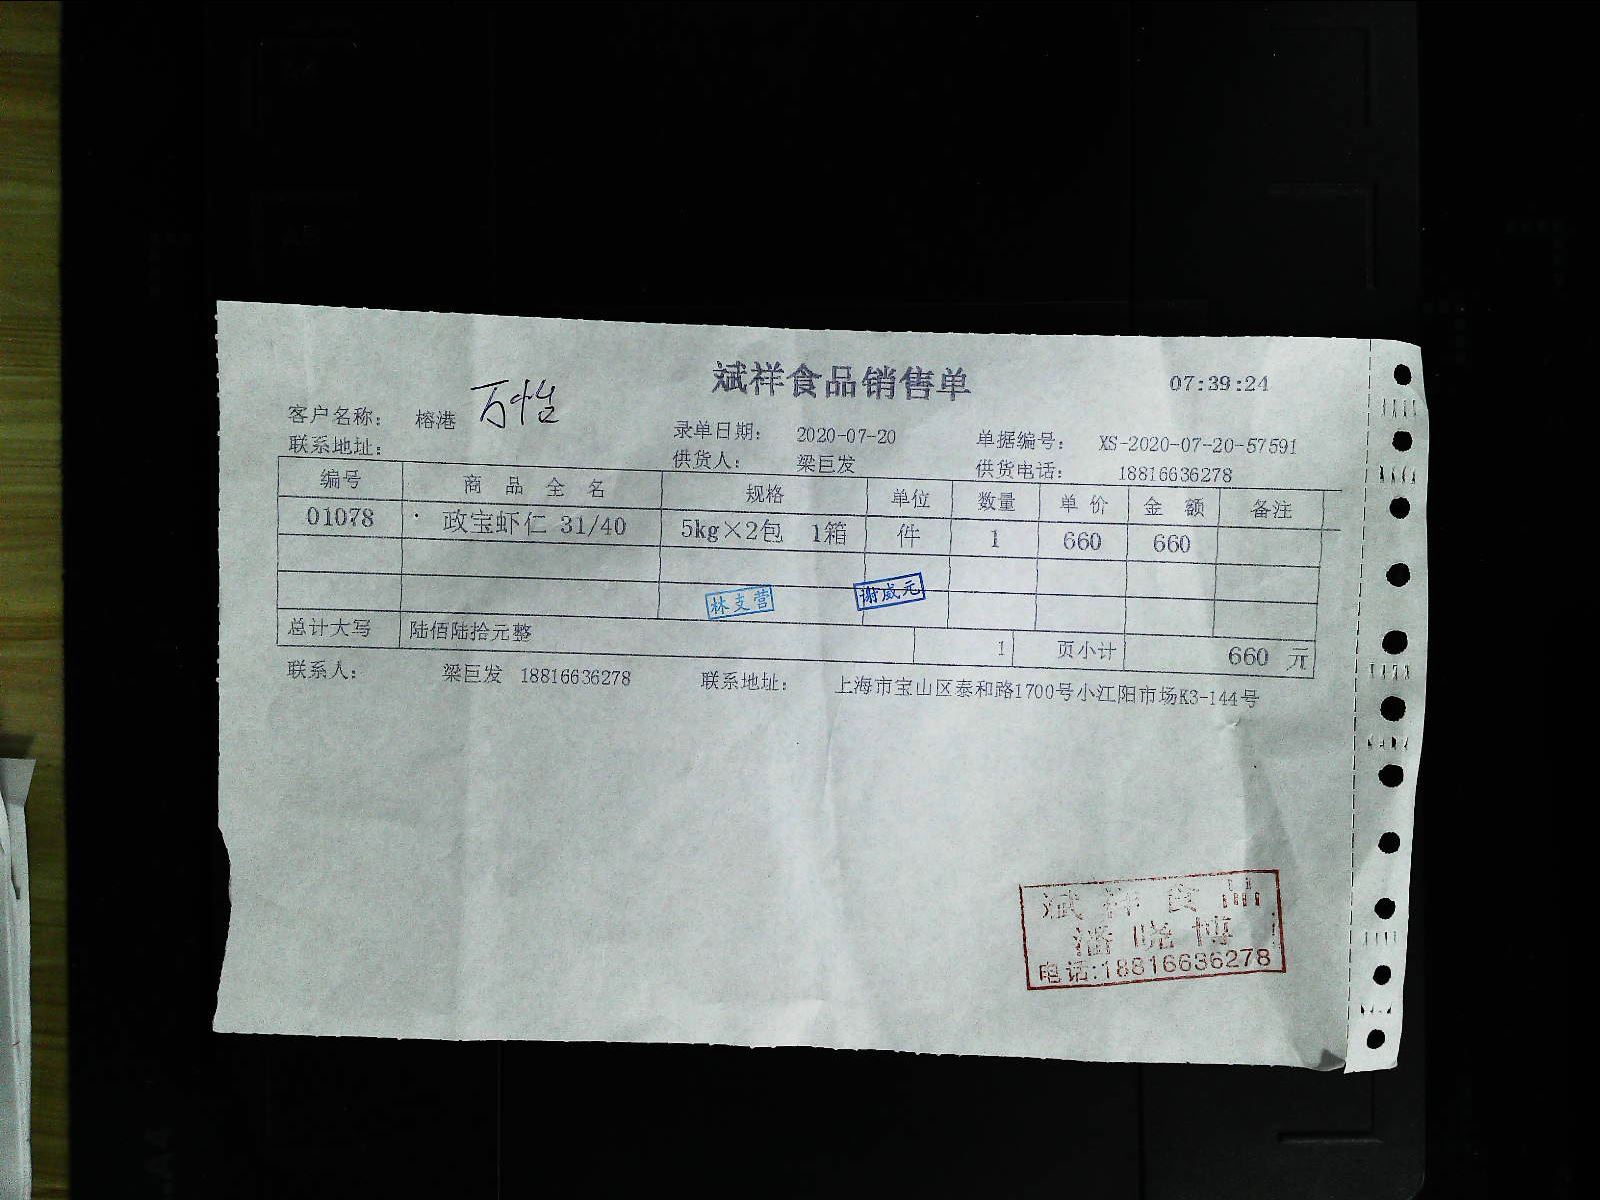 斌祥食品销售单 07:39:24
客户名称： 榕港 万怡 录单日期： 2020-07-20 单据编号： XS-2020-07-20-57591
联系地址： 供货人： 梁巨发 供货电话： 18816636278
编号 商品全名 规格 单位 数量 单价 金额 备注
01078 政宝虾仁 31/40 5kg×2包 1箱 件 1 660 660
林支营 谢威元
总计大写 陆佰陆拾元整 1 页小计 660 元
联系人： 梁巨发 18816636278 联系地址： 上海市宝山区泰和路1700号小江阳市场K3-144号
斌祥食品
潘晓博
电话:18816636278